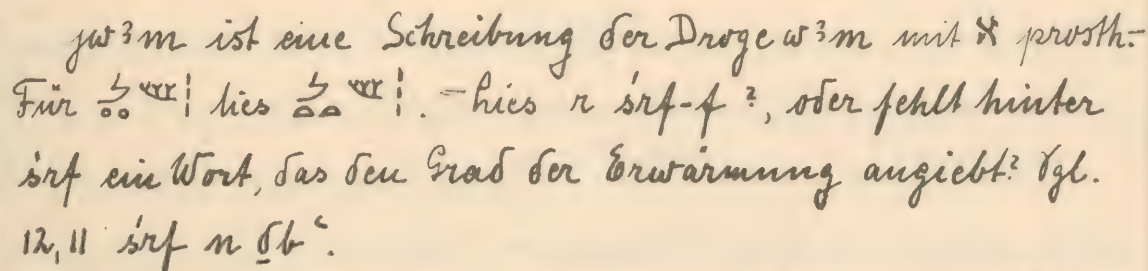 jwꜣm ist eine Schreibung der Droge wꜣm mit א prosth.-
Für lies . – Lies r śrf-f ?, oder fehlt hinter
śrf ein Wort, das den Grad der Erwärmung angiebt? Vgl.
12,11 śrf n ḏbꜥ.